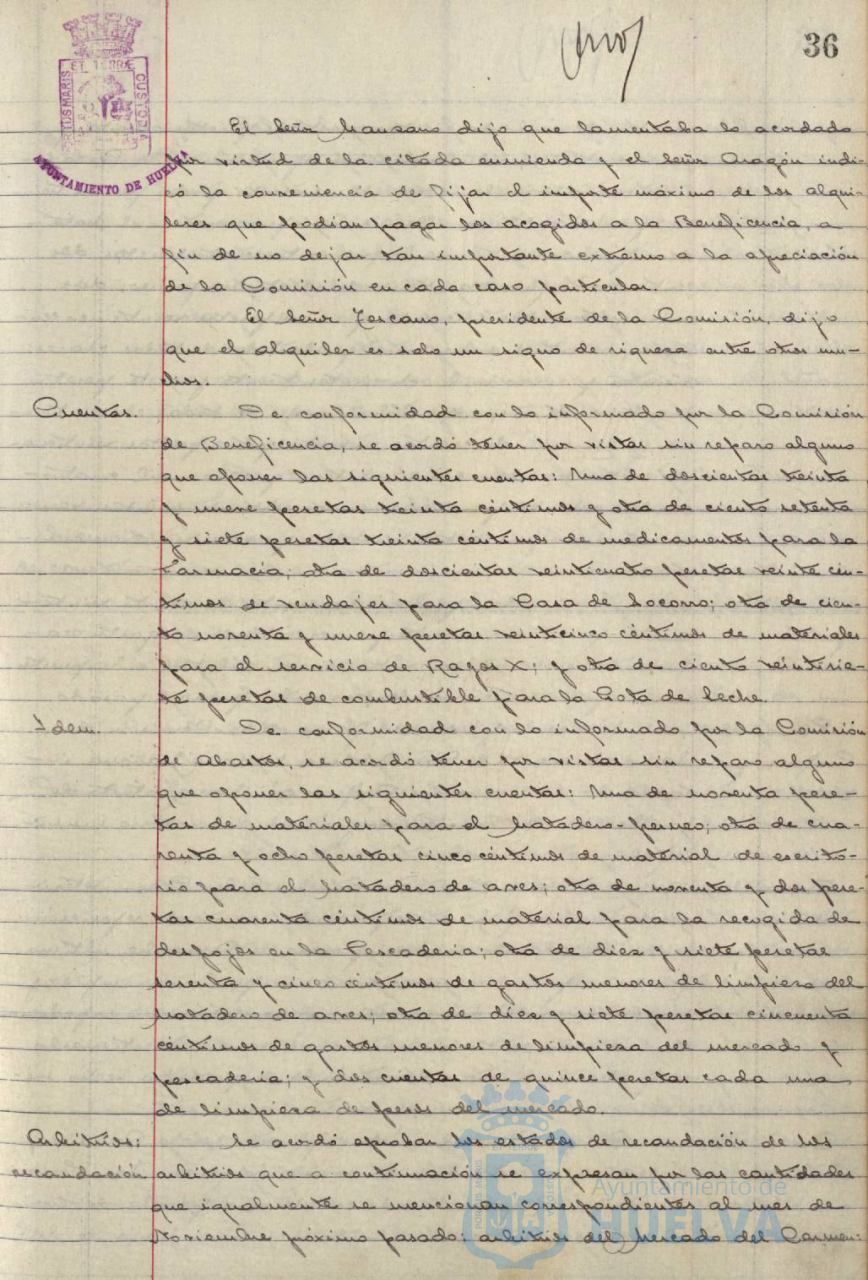 36
PORTUS MARIS ET TERRÆ CUSTODIA
AYUNTAMIENTO DE HUELVA
El Señor Manzano dijo que lamentaba lo acordado
por virtud de la citada enmienda y el Señor Aragón indi-
có la conveniencia de fijar el importe máximo de los alqui-
leres que podían pagar los acogidos a la Beneficencia, a
fin de no dejar tan importante extremo a la apreciación
de la Comisión en cada caso particular.
El Señor Tescano, presidente de la Comisión, dijo
que el alquiler es solo un signo de riqueza entre otros mu-
chos.
Cuentas. De conformidad con lo informado por la Comisión
de Beneficencia, se acordó tener por vistas sin reparo alguno
que oponer las siguientes cuentas: Una de doscientas treinta
y nueve pesetas treinta céntimos y otra de ciento setenta
y siete pesetas treinta céntimos de medicamentos para la
Farmacia; otra de doscientas veinticuatro pesetas veinte cén-
timos de vendajes para la Casa de Socorro; otra de cien-
to noventa y nueve pesetas veinticinco céntimos de materiales
para el servicio de Rayos X; y otra de ciento veintisie-
te pesetas de combustible para la Gota de Leche.
Idem. De conformidad con lo informado por la Comisión
de Abastos, se acordó tener por vistas sin reparo alguno
que oponer las siguientes cuentas: Una de noventa pese-
tas de materiales para el Matadero-perneo; otra de cua-
renta y ocho pesetas cinco céntimos de material de escrito-
rio para el Matadero de aves; otra de noventa y dos pese-
tas cuarenta céntimos de material para la recogida de
despojos en la Pescadería; otra de diez y siete pesetas
sesenta y cinco céntimos de gastos menores de limpieza del
Matadero de aves; otra de diez y siete pesetas cincuenta
céntimos de gastos menores de limpieza del mercado y
pescadería; y dos cuentas de quince pesetas cada una
de limpieza de pesos del mercado.
Arbitrios: Se acordó aprobar los estados de recaudación de los
recaudación arbitrios que a continuación se expresan por las cantidades
que igualmente se mencionan correspondientes al mes de
Noviembre próximo pasado: arbitrios del Mercado del Carmen:
Ayuntamiento de
HUELVA